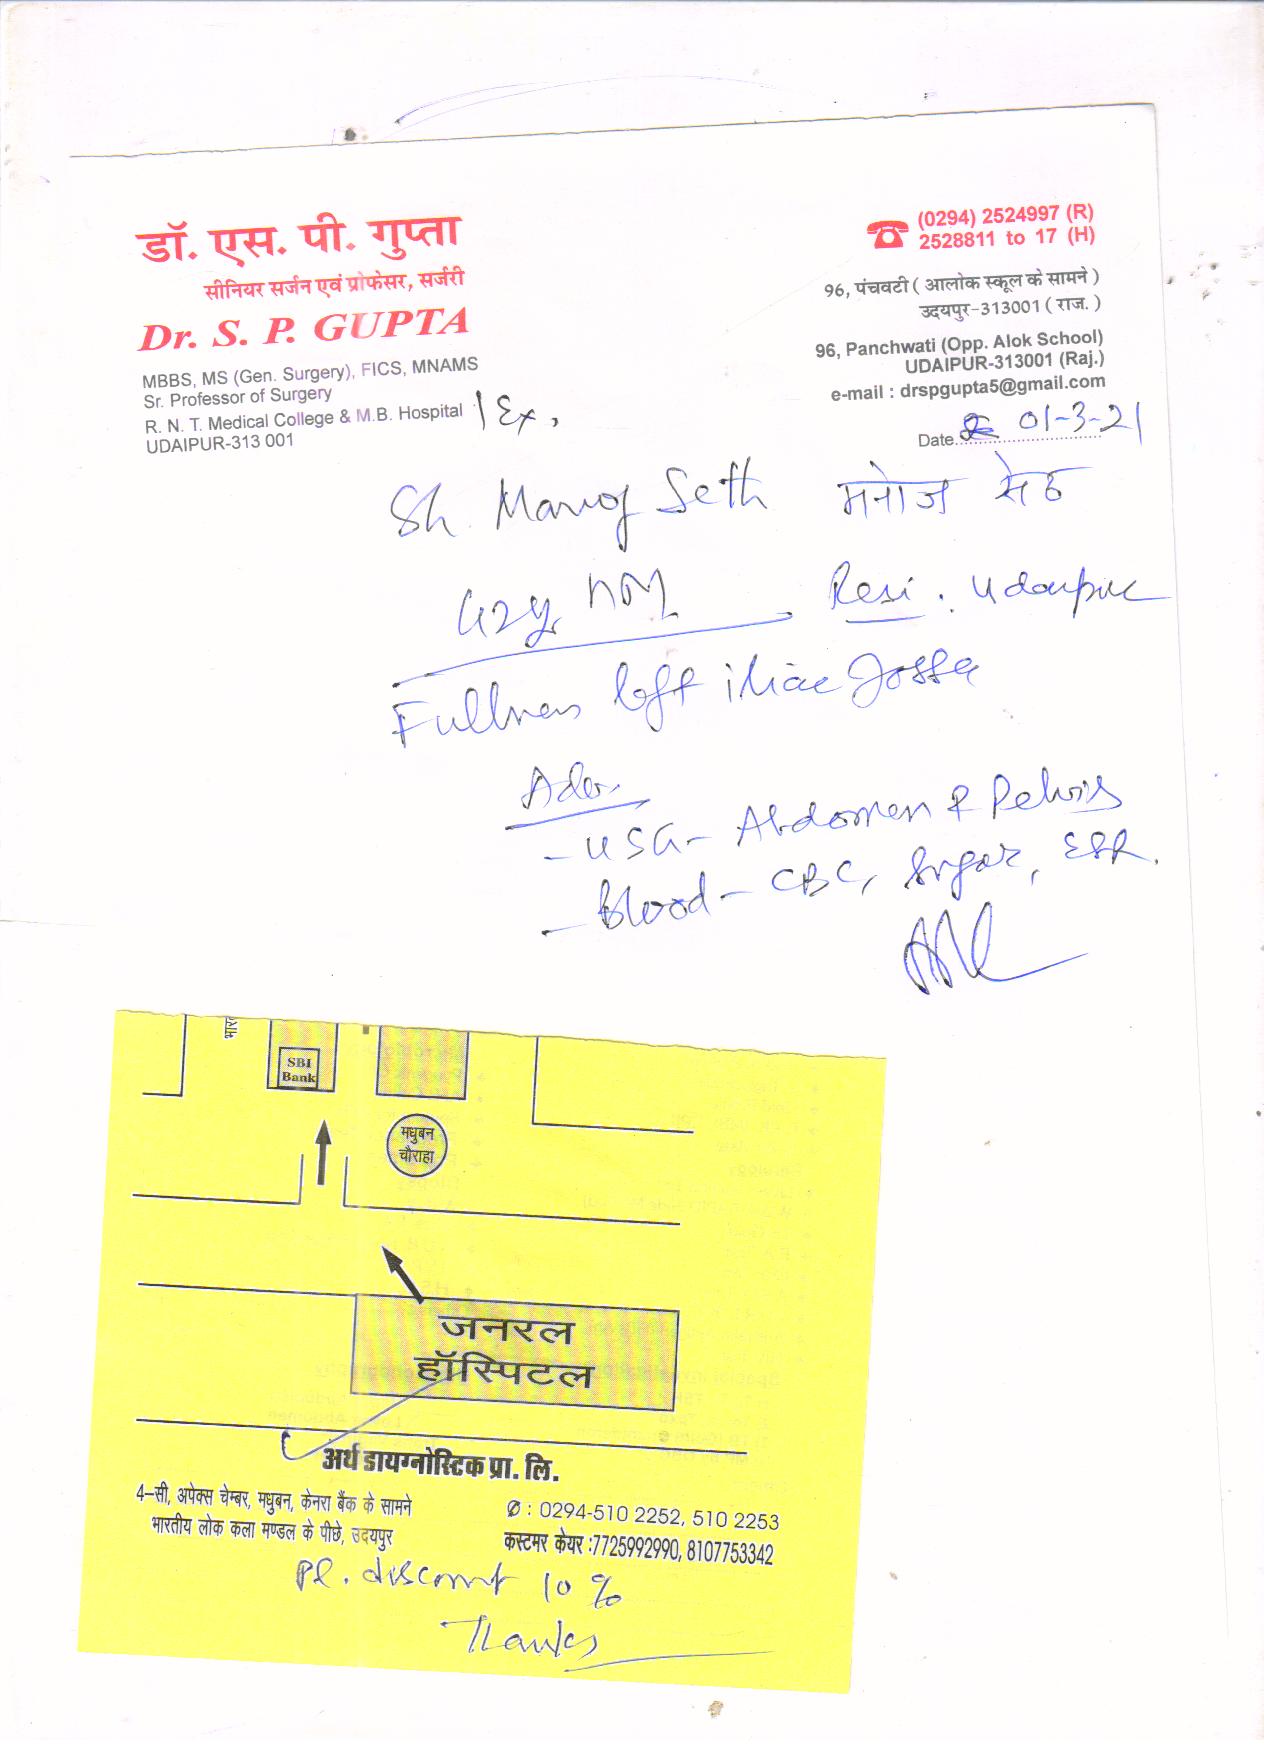 डॉ. एस. पी. गुप्ता
सीनियर सर्जन एवं प्रोफेसर, सर्जरी
Dr. S. P. GUPTA
MBBS, MS (Gen. Surgery), FICS, MNAMS
Sr. Professor of Surgery
R. N. T. Medical College & M.B. Hospital
UDAIPUR-313 001
Ex,
(0294) 2524997 (R)
2528811 to 17 (H)
96, पंचवटी ( आलोक स्कूल के सामने )
उदयपुर-313001 ( राज. )
96, Panchwati (Opp. Alok School)
UDAIPUR-313001 (Raj.)
e-mail : drspgupta5@gmail.com
Date 01-3-21
Sh. Manoj Seth मनोज सेठ
Resi. Udaipur
Fullness left iliac fossa
Adv.
- USG - Abdomen & Pelvis
- Blood - CBC, Sugar, ESR.
SBI
Bank
मधुबन
चौराहा
जनरल
हॉस्पिटल
अर्थ डायग्नोस्टिक प्रा. लि.
4-सी, अपेक्स चेम्बर, मधुबन, केनरा बैंक के सामने
भारतीय लोक कला मण्डल के पीछे, उदयपुर
: 0294-510 2252, 510 2253
कस्टमर केयर :7725992990, 8107753342
Pl. discount 10 %
Thanks